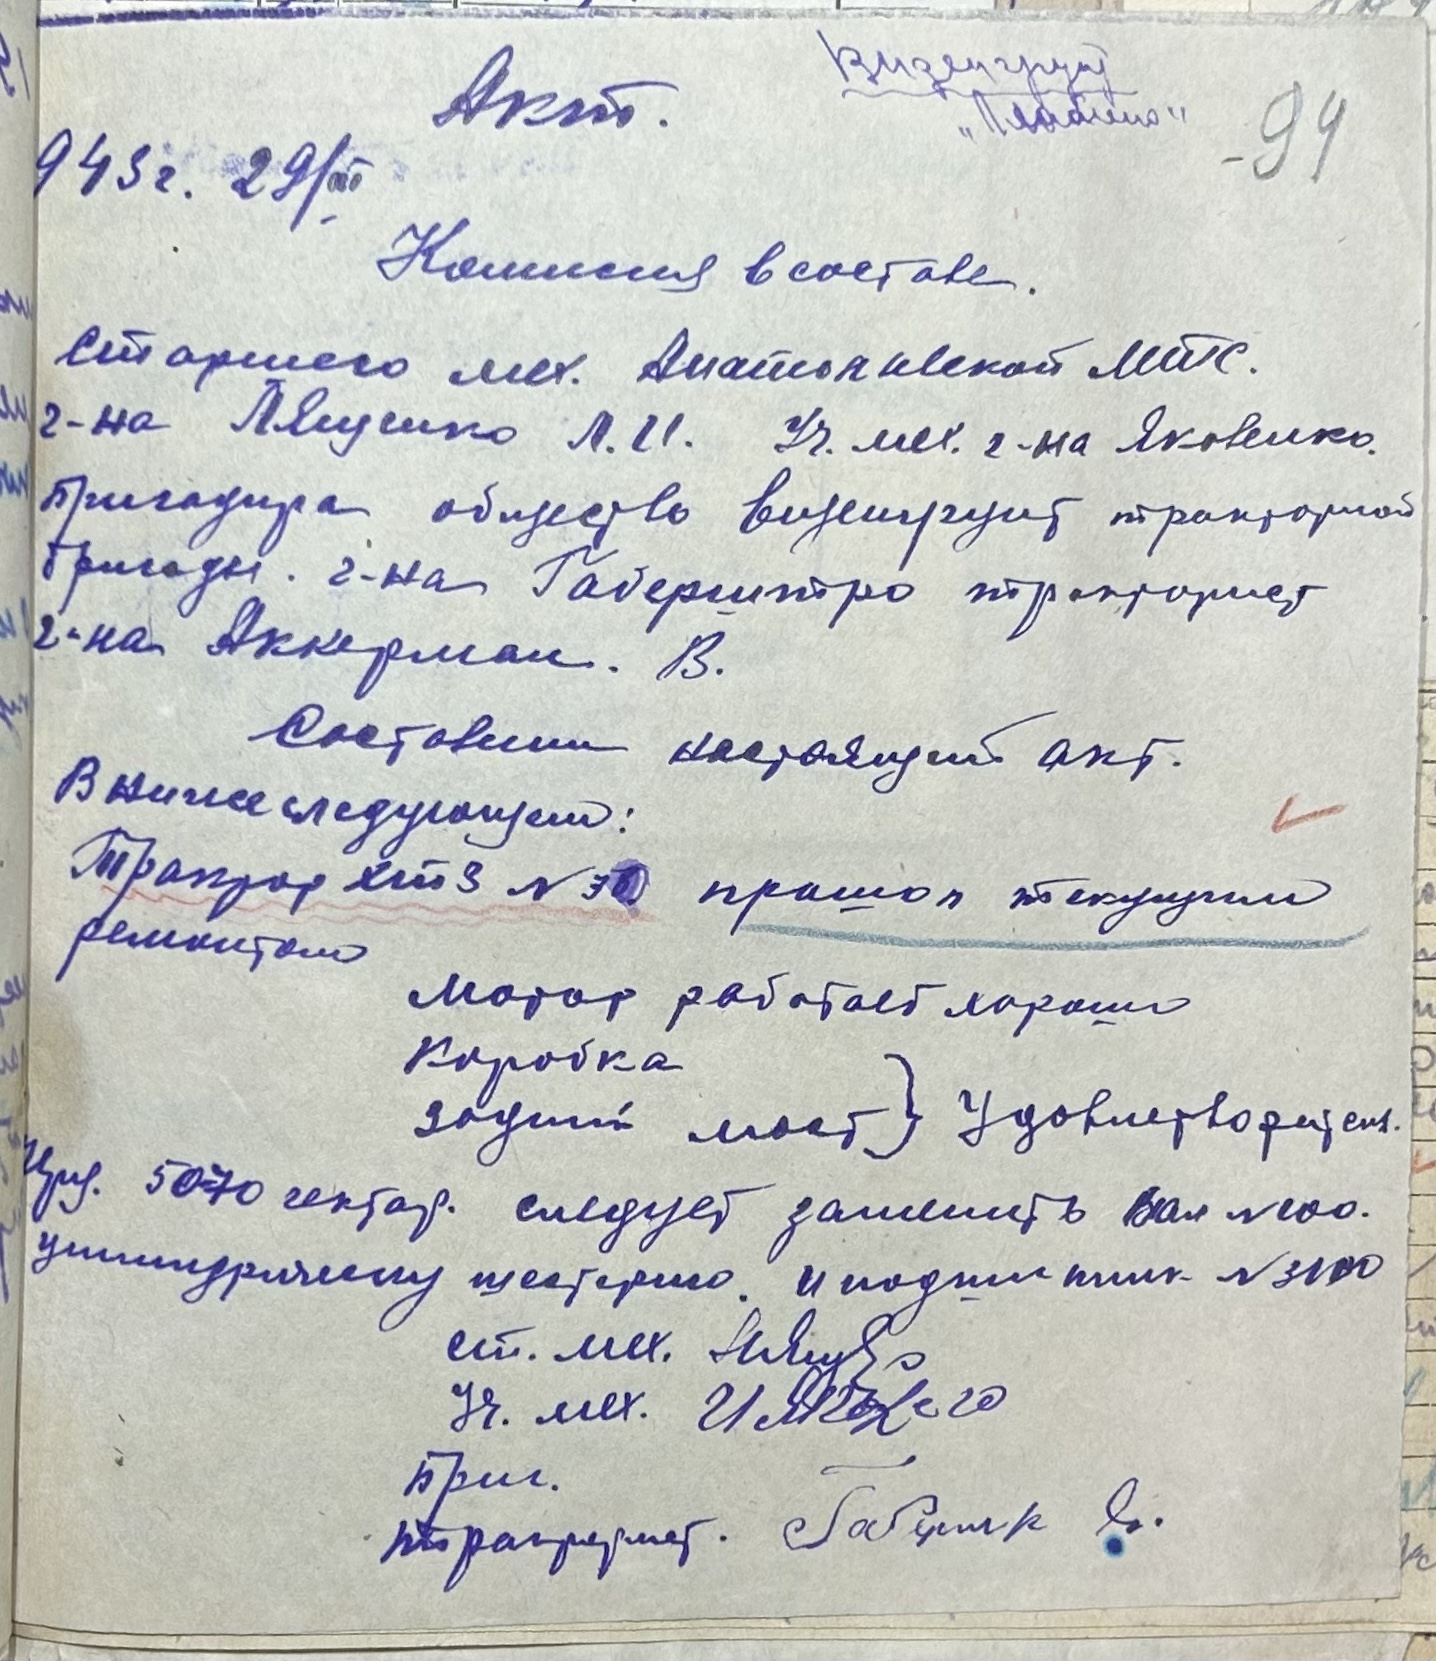 Акт.
Визенгрунт
-94
943 г. 29/III
Комисия в составе.
Старшего мех. Анатольевской МТС.
г-на Лященко Л.И. Уч. мех. г-на Яковенко.
Бригадира общество Визенгрунт тракторной
бригады. г-на тракторист
г-на Аккерман. В.
Составили настоящий акт.
В нижеследующем:
Трактор ХТЗ N прошол текущим
ремонтом
Мотор работает хорошо
Коробка
Задний мост } Удовлетворительн.
50-70 гектар. следует заменить Вал N 100.
цилиндрическую шестерню. и подшипник N 3100
ст. мех.
Уч. мех.
Бриг.
тракторист.